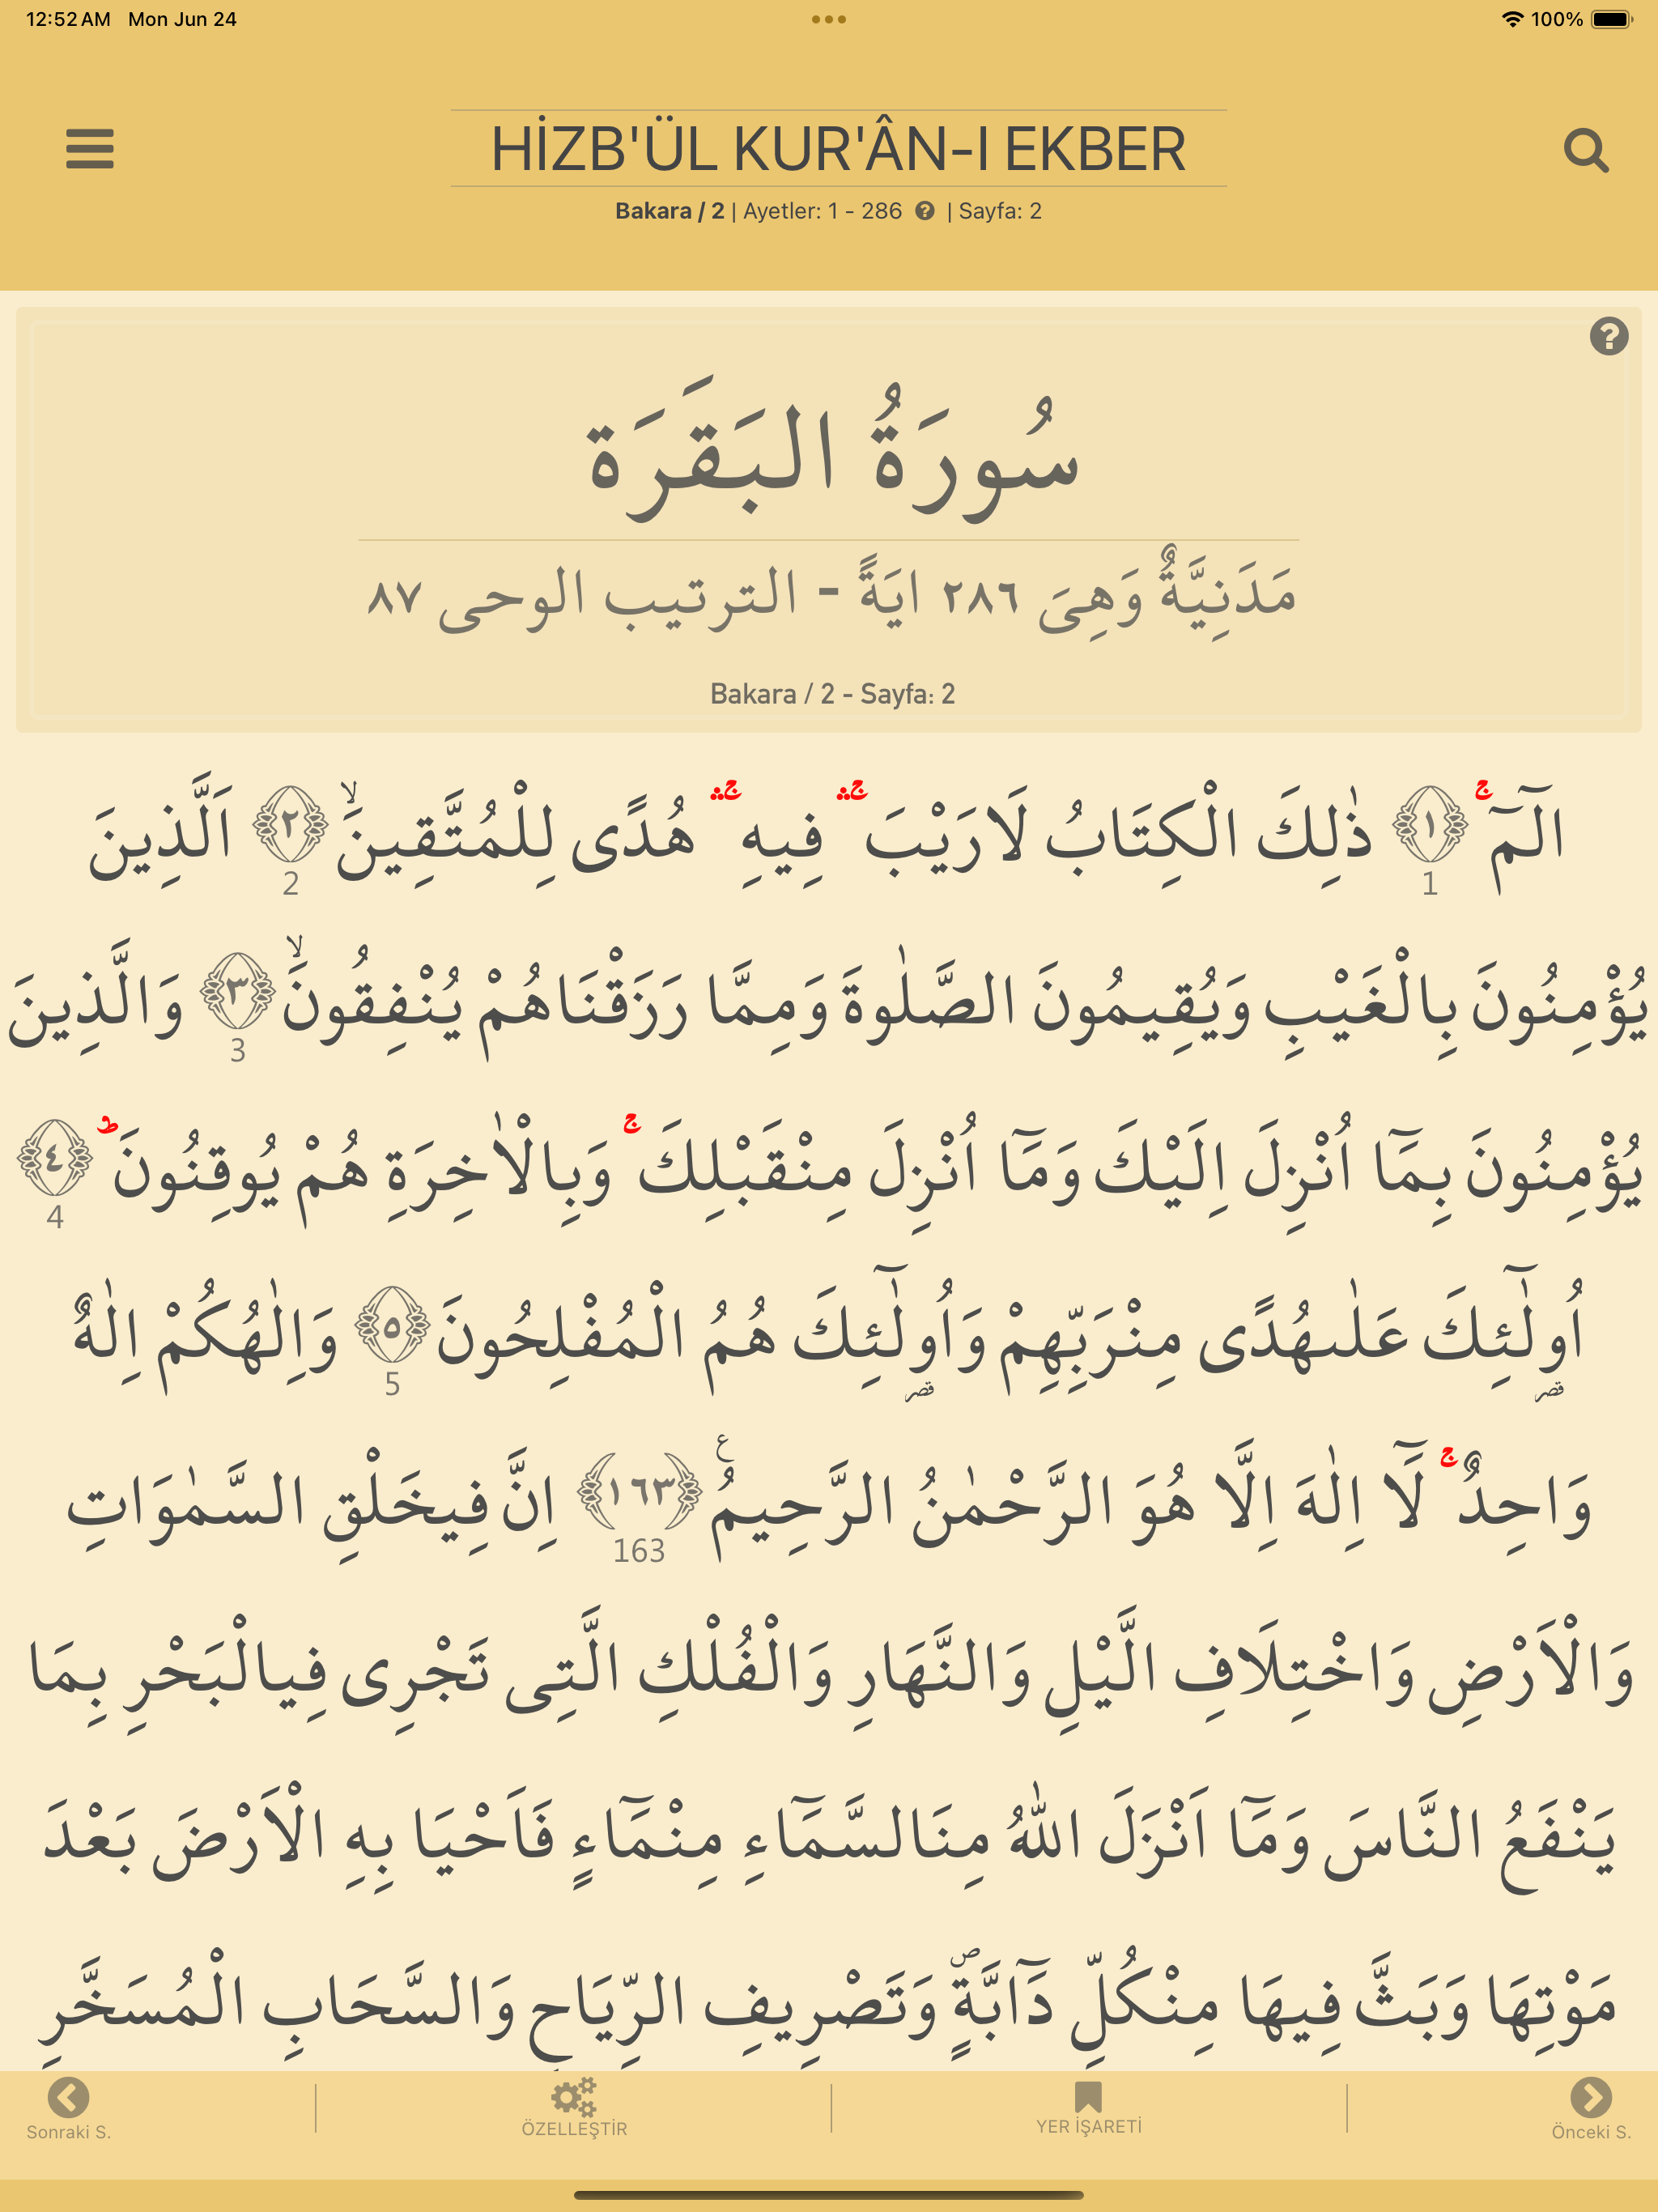 12:52 AM Mon Jun 24
100%
HİZB'ÜL KUR'ÂN-I EKBER
Bakara / 2 | Ayetler: 1 - 286 ? | Sayfa: 2
?
سُورَةُ البَقَرَة
مَدَنِيَّةٌ وَهِىَ ٢٨٦ ايَةً - الترتيب الوحى ٨٧
Bakara / 2 - Sayfa: 2
الٓمٓ ۚ ﴿١﴾ 1 ذٰلِكَ الْكِتَابُ لَارَيْبَ ۚۛ فِيهِ ۚۛ هُدًى لِلْمُتَّقِينَۙ ﴿٢﴾ 2 اَلَّذِينَ
يُؤْمِنُونَ بِالْغَيْبِ وَيُقِيمُونَ الصَّلٰوةَ وَمِمَّا رَزَقْنَاهُمْ يُنْفِقُونَۙ ﴿٣﴾ 3 وَالَّذِينَ
يُؤْمِنُونَ بِمَٓا اُنْزِلَ اِلَيْكَ وَمَٓا اُنْزِلَ مِنْقَبْلِكَ ۚ وَبِالْاٰخِرَةِ هُمْ يُوقِنُونَ ؕ ﴿٤﴾ 4
اُولٰٓئِكَ قصر عَلٰىهُدًى مِنْرَبِّهِمْ وَاُولٰٓئِكَ قصر هُمُ الْمُفْلِحُونَ ﴿٥﴾ 5 وَاِلٰهُكُمْ اِلٰهٌ
وَاحِدٌ ۚ لَٓا اِلٰهَ اِلَّا هُوَ الرَّحْمٰنُ الرَّحِيمُ ع ﴿١٦٣﴾ 163 اِنَّ فِيخَلْقِ السَّمٰوَاتِ
وَالْاَرْضِ وَاخْتِلَافِ الَّيْلِ وَالنَّهَارِ وَالْفُلْكِ الَّتِى تَجْرِى فِيالْبَحْرِ بِمَا
يَنْفَعُ النَّاسَ وَمَٓا اَنْزَلَ اللّٰهُ مِنَالسَّمَٓاءِ مِنْمَٓاءٍ فَاَحْيَا بِهِ الْاَرْضَ بَعْدَ
مَوْتِهَا وَبَثَّ فِيهَا مِنْكُلِّ دَٓابَّةٍ ص وَتَصْرِيفِ الرِّيَاحِ وَالسَّحَابِ الْمُسَخَّرِ
Sonraki S. ÖZELLEŞTİR YER İŞARETİ Önceki S.